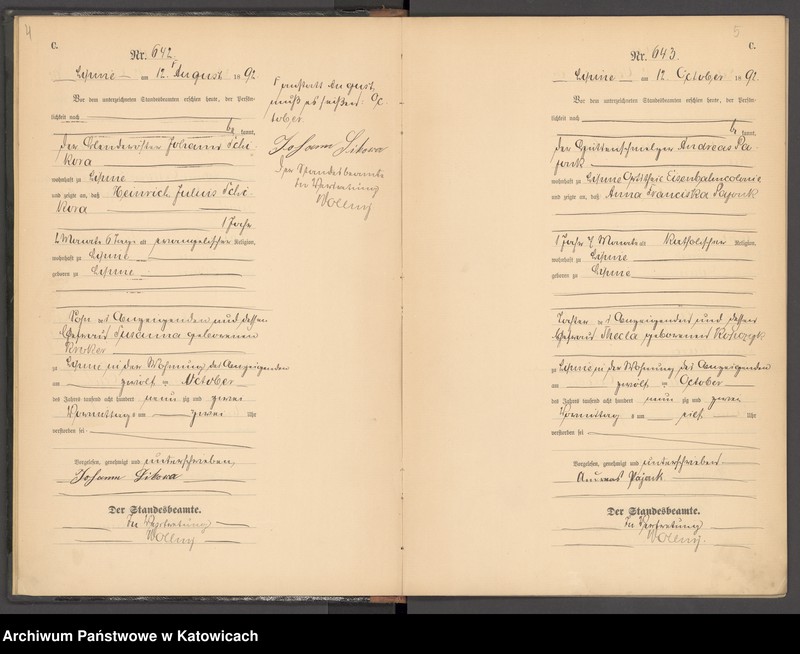 4
C.
Nr. 642.
Lipine am 12. August 1892.
Vor dem unterzeichneten Standesbeamten erschien heute, der Persön-
lichkeit nach
be kannt,
der Blenderöster Johann Schi-
kora
wohnhaft zu Lipine
und zeigte an, daß Heinrich Julius Schi-
kora
1 Jahr
2 Monate 6 Tage alt evangelischer Religion,
wohnhaft zu Lipine
geboren zu Lipine
Sohn des Anzeigenden und dessen
Ehefrau Susanna geborenen
Kroker
zu Lipine in der Wohnung des Anzeigenden
am zwölf ten October
des Jahres tausend acht hundert neun zig und zwei
Vormittags um zwei Uhr
verstorben sei
Vorgelesen, genehmigt und unterschrieben
Johann Sikora
Der Standesbeamte.
In Vertretung
Wollny
anstatt August,
muß es heißen: Oc-
tober.
Johann Sikora
Der Standesbeamte
In Vertretung
Wollny
5
C.
Nr. 643.
Lipine am 12. October 1892.
Vor dem unterzeichneten Standesbeamten erschien heute, der Persön-
lichkeit nach
be kannt,
der Hüttenschmelzer Andreas Pa-
jonk
wohnhaft zu Lipine Ortstheil Eisenbahncolonie
und zeigte an, daß Anna Franciska Pajonk
1 Jahr 7 Monate alt katholischer Religion,
wohnhaft zu Lipine
geboren zu Lipine
Tochter des Anzeigenden und dessen
Ehefrau Thecla geborenen
zu Lipine in der Wohnung des Anzeigenden
am zwölf ten October
des Jahres tausend acht hundert neun zig und zwei
Vormittag s um Uhr
verstorben sei
Vorgelesen, genehmigt und unterschrieben
Andreas Pajonk
Der Standesbeamte.
In Vertretung
Wollny.
Archiwum Państwowe w Katowicach